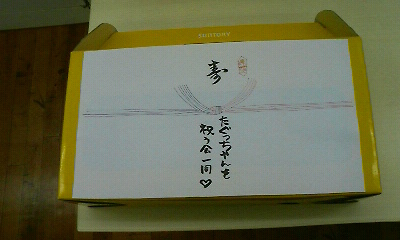 SUNTORY
寿
たぐっちゃんを
祝う会一同♡